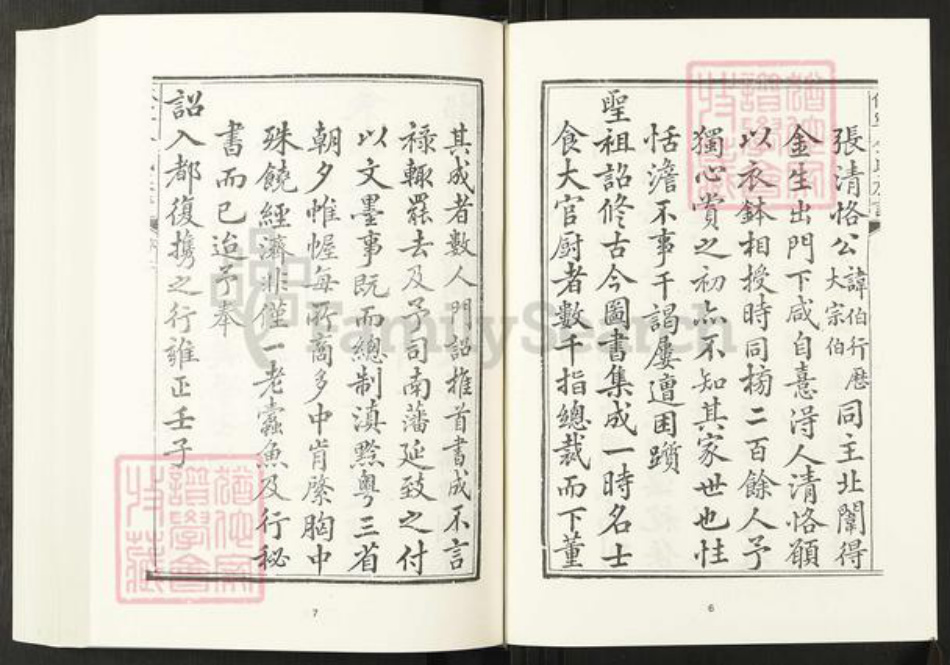 張清恪公諱伯行歷大宗伯同主北闈得
金生出門下咸自憙得人清恪願
以衣鉢相授時同榜二百餘人予
獨心賞之初亦不知其家世也性
恬澹不事干謁屢遭困躓
聖祖詔修古今圖書集成一時名士
食大官厨者數千指總裁而下董
6
其成者數人門詔推首書成不言
祿輙罷去及予司南藩延致之付
以文墨事既而總制滇黔粤三省
朝夕帷幄每所商多中肯綮胸中
殊饒經濟非僅一老蠹魚及行秘
書而已迨予奉
詔入都復携之行雍正壬子
7
FamilySearch